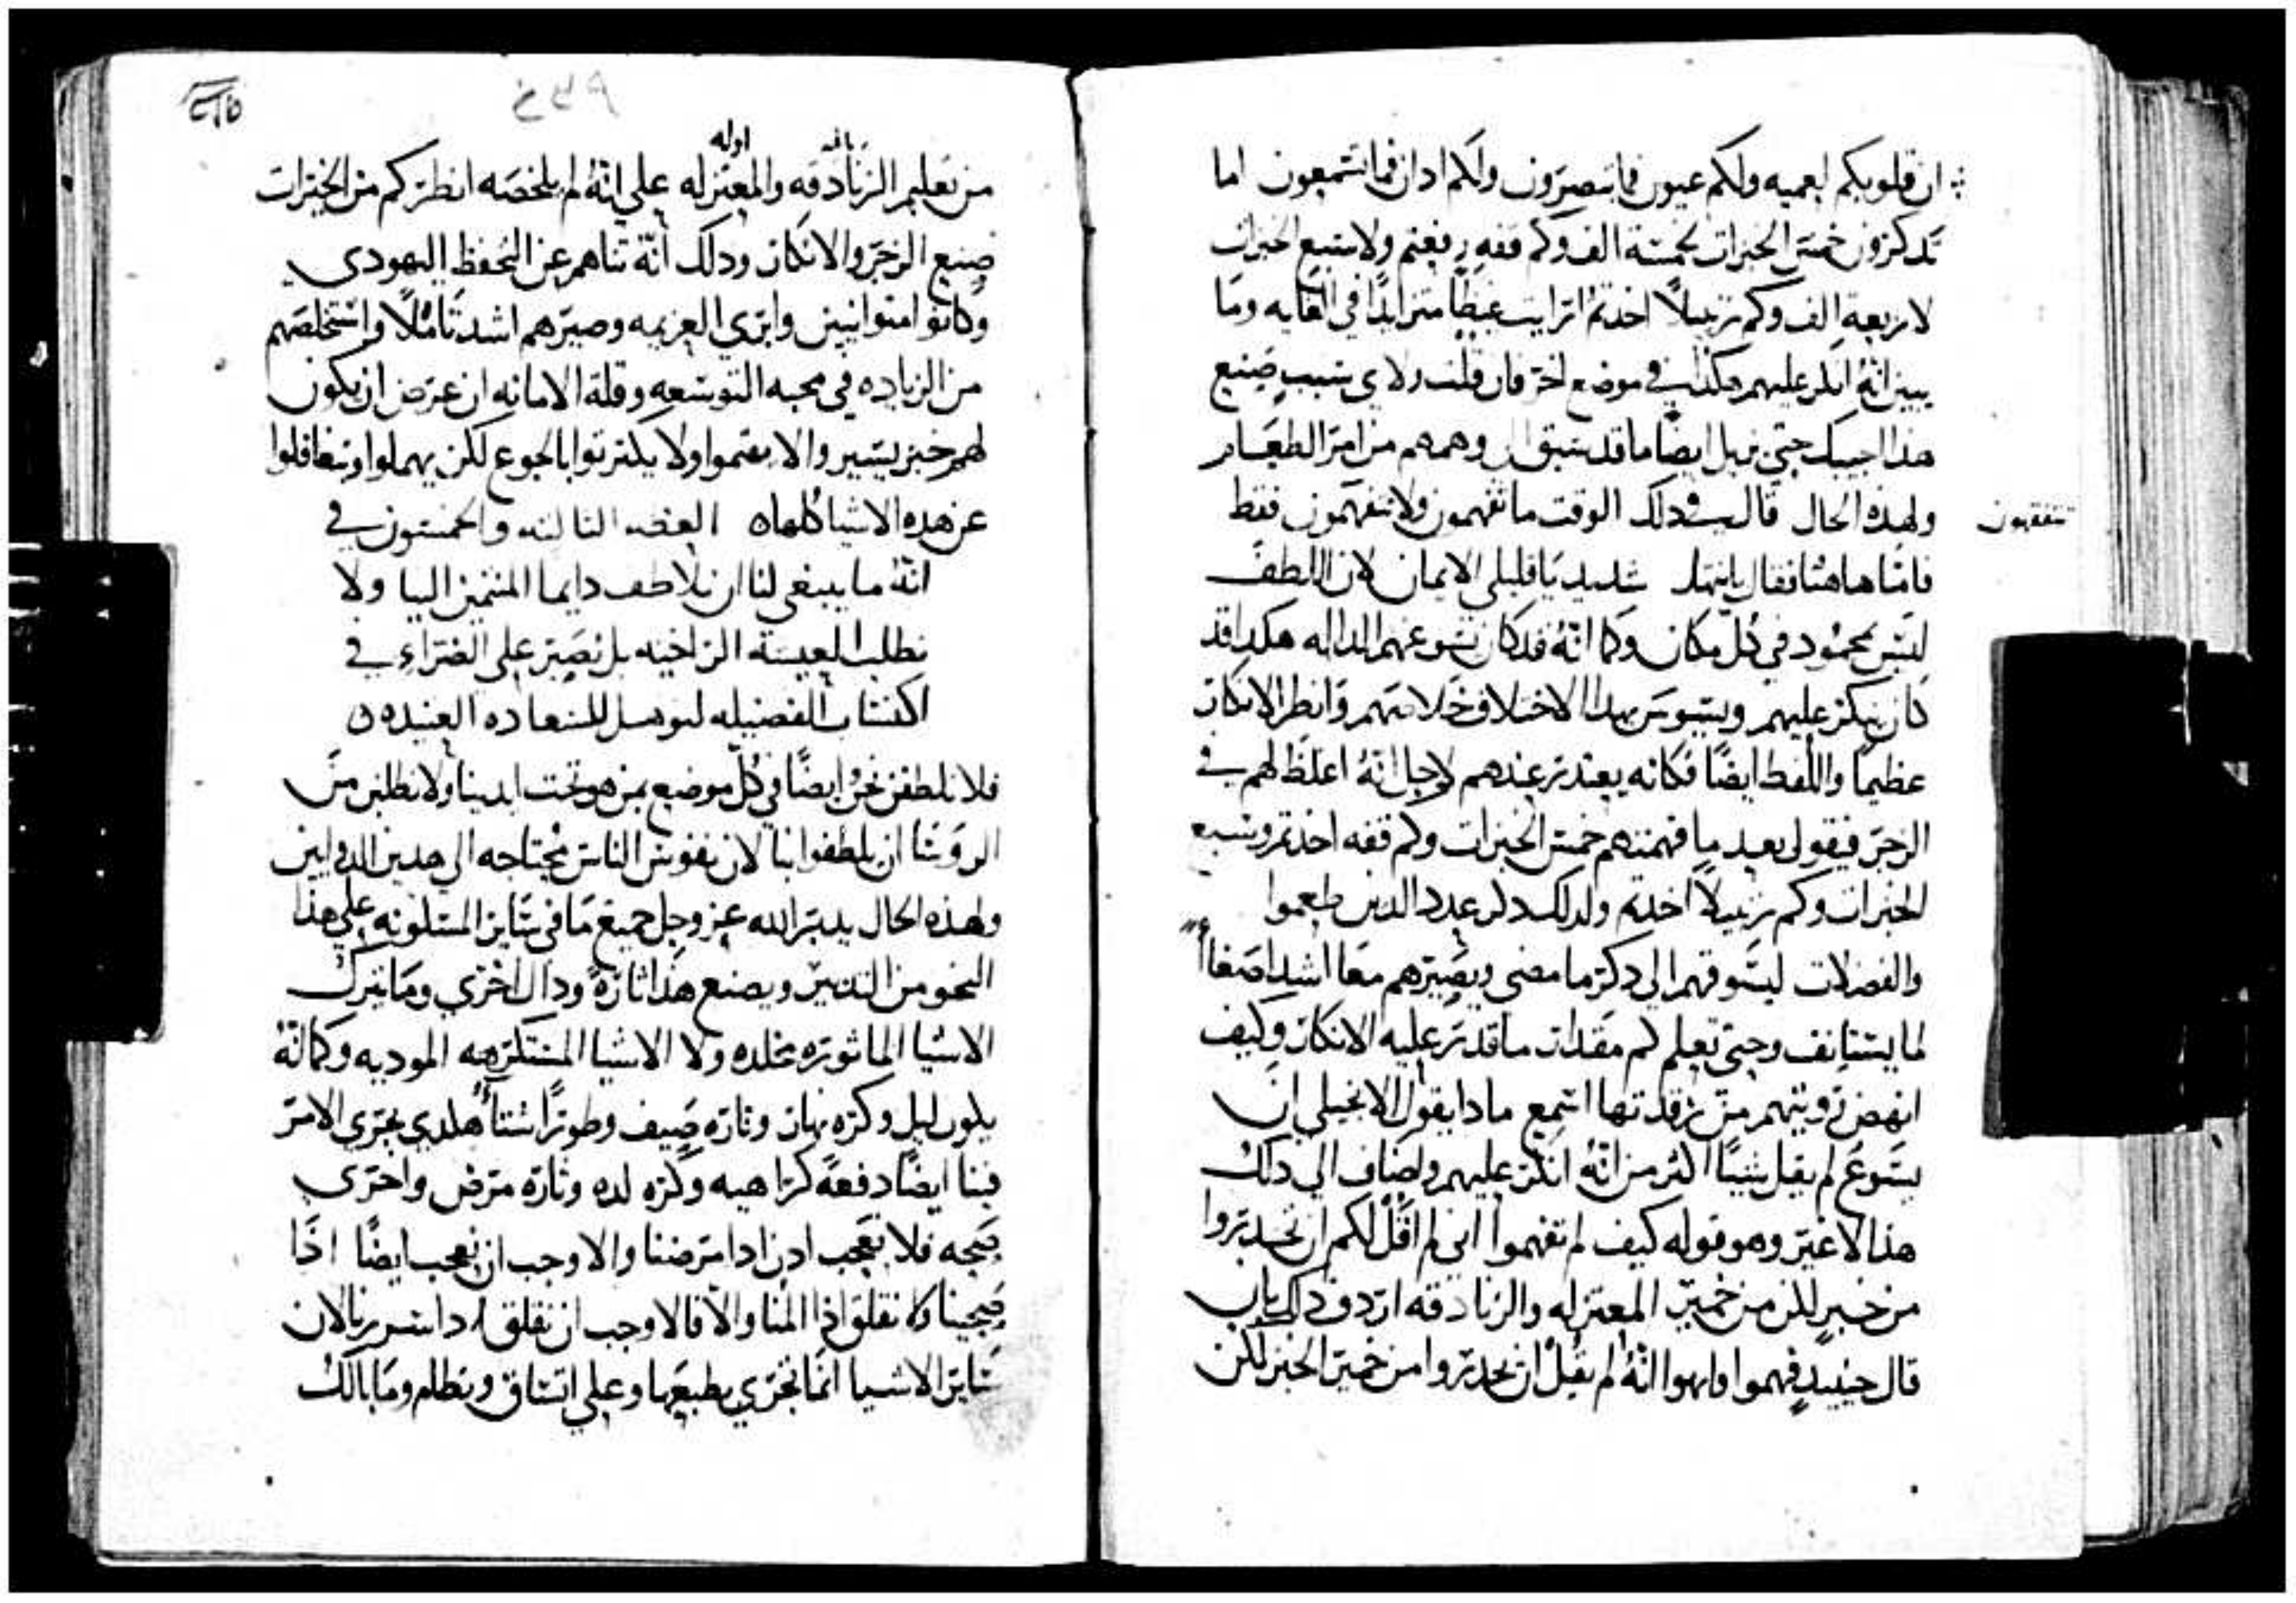 ان قلوبكم لعميه ولكم عيون فما تبصرون ولكم ادان فما تسمعون اما
تدكرون خمس الخبزات لخمسة الف وكم قفه رفعتم ولا سبع الخبزات
لاربعة الف وكم زنبيلاً اخدتم ارايت غيظاً متزايداً في الغايه وما
يبين انهُ انكر عليهم هكذا في موضع اخر فان قلت ولاي سبب صنع
هذا اجيبك حتى يزيل ايضاً ما قد سبق وهمهم من امر الطعام
ولهذه الحال قال في دلك الوقت ما تفهمون ولا تتفهمون فقط
تتفقهون
فاما هاهنا فقال بانتهار شديد يا قليلي الايمان لان اللطف
ليس بمحمود في كل مكان وكما انهُ قد كان يسوغهم الداله هكدا قد
كان ينكر عليهم ويسوس بهدا الاختلاف خلاصهم وانظر الانكار
عظيماً واللفظ ايضاً فكانه يعتدر عندهم لاجل انهُ اغلظ لهم في
الزجر فيقول بعد ما فهمتم خمس الخبزات وكم قفه اخدتم وسبع
الخبزات وكم زنبيلاً اخدتم ولدلك دكر عدد الدين طعموا
والفضلات ليسوقهم الى دكر ما مضى ويصيرهم معا اشد اصغاأً
لما يستانف وحتى تعلم كم مقدار ما قدر عليه الانكار وكيف
انهض رويتهم من رقدتها اسمع مادا يقول الانجيلي ان
يسوع لم يقل شيئاً اكثر من انهُ انكر عليهم واضاف الى دلك
هذا لا غير وهو قوله كيف لم تفهموا اني لم اقل لكم ان تحدروا
من خبز لكن من خمير المعتزله والزنادقه اردف داك بان
قال حينيدٍ فهموا انهُ لم يقل ان يحدروا من خمير الخبز لكن
من تعليم الزنادقه والمعتزله على انهُ لم يلخصه انظر كم من الخيرات
صنع الزجر والانكار ودلك انهُ تناهم عن التحفظ اليهودي
وكانوا متوانيين وابري العزيمه وصيرهم اشد تاملاً واستخلصهم
من الزياده في محبه التوسعه وقلة الامانه ان عرض ان يكون
لهم خبز يسير والا يهتموا ولا يكترتوا بالجوع لكن يهملوا ويتغافلوا
عن هده الاشيا كلها العظه التالته والخمسون في
انهُ ما ينبغي لنا ان نلاطف دايما المنتمين الينا ولا
نطلب المعيسه الراخيه بل نصبر على الضراء في
اكتساب الفضيله لنوهل للسعاده العتيده
فلا نلطفن نحن ايضاً في كل موضع بمن هو تحت ايدينا ولا نطلبن من
الروسا ان يلطفوا بنا لان نفوس الناس محتاجه الى هدين الدوايين
ولهذه الحال يدبر الله عز وجل جميع ما في ساير المسكونه على هذا
النحو من التدبير ويصنع هذا تارةً وداك اخرى وما يترك
الاشيا الماثوره مخلده ولا الاشيا المستكرهه الموديه وكما انهُ
يكون ليل وكره نهار وتاره صيف وطوراً شتاءً هكدي يجري الامر
فينا ايضاً دفعةً كراهيه وكره لده وتاره مرض واخرى
صحه فلا نعجب ادن ادا مرضنا والا وجب ان نعجب ايضاً اذا
صححنا ولا نقلق اذا المنا والا فالاوجب ان نقلق ادا سررنا لان
ساير الاشيا انما تجري بطبعها وعلى اتساق ونظام وما بالك